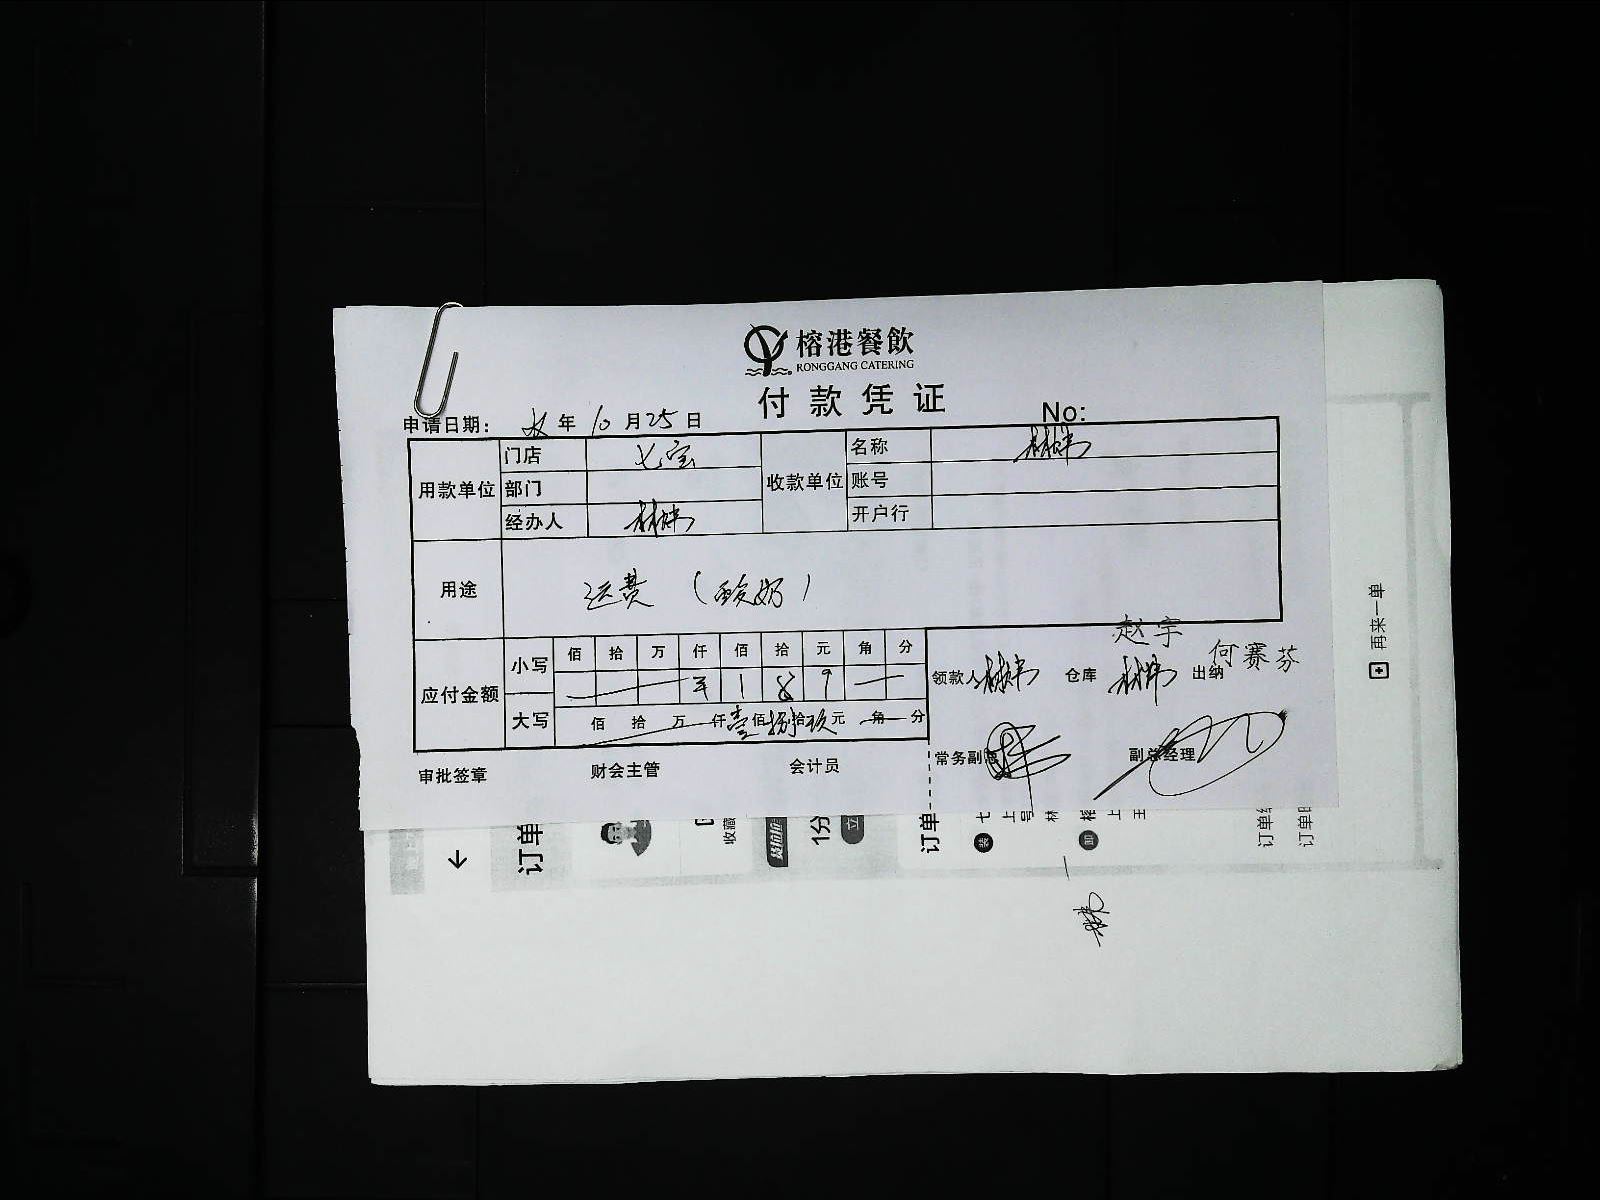 榕港餐飲
RONGGANG CATERING
付款凭证
No:
申请日期: 年 10 月 25 日
用款单位 门店 七宝 收款单位 名称 林炜
部门 账号
经办人 林炜 开户行
用途 运费（酸奶）
应付金额 小写 佰 拾 万 仟 佰 拾 元 角 分
¥ 1 8 9 —
大写 佰 拾 万 仟 壹 佰 捌 拾 玖 元 角 分
赵宇
领款人 林炜 仓库 林炜 出纳 何赛芬
常务副总 副总经理
审批签章 财会主管 会计员
再来一单
订单
收藏
货拉拉
1分
立
订单
装 七
上
号
林
卸 榕
上
王
订单
订单